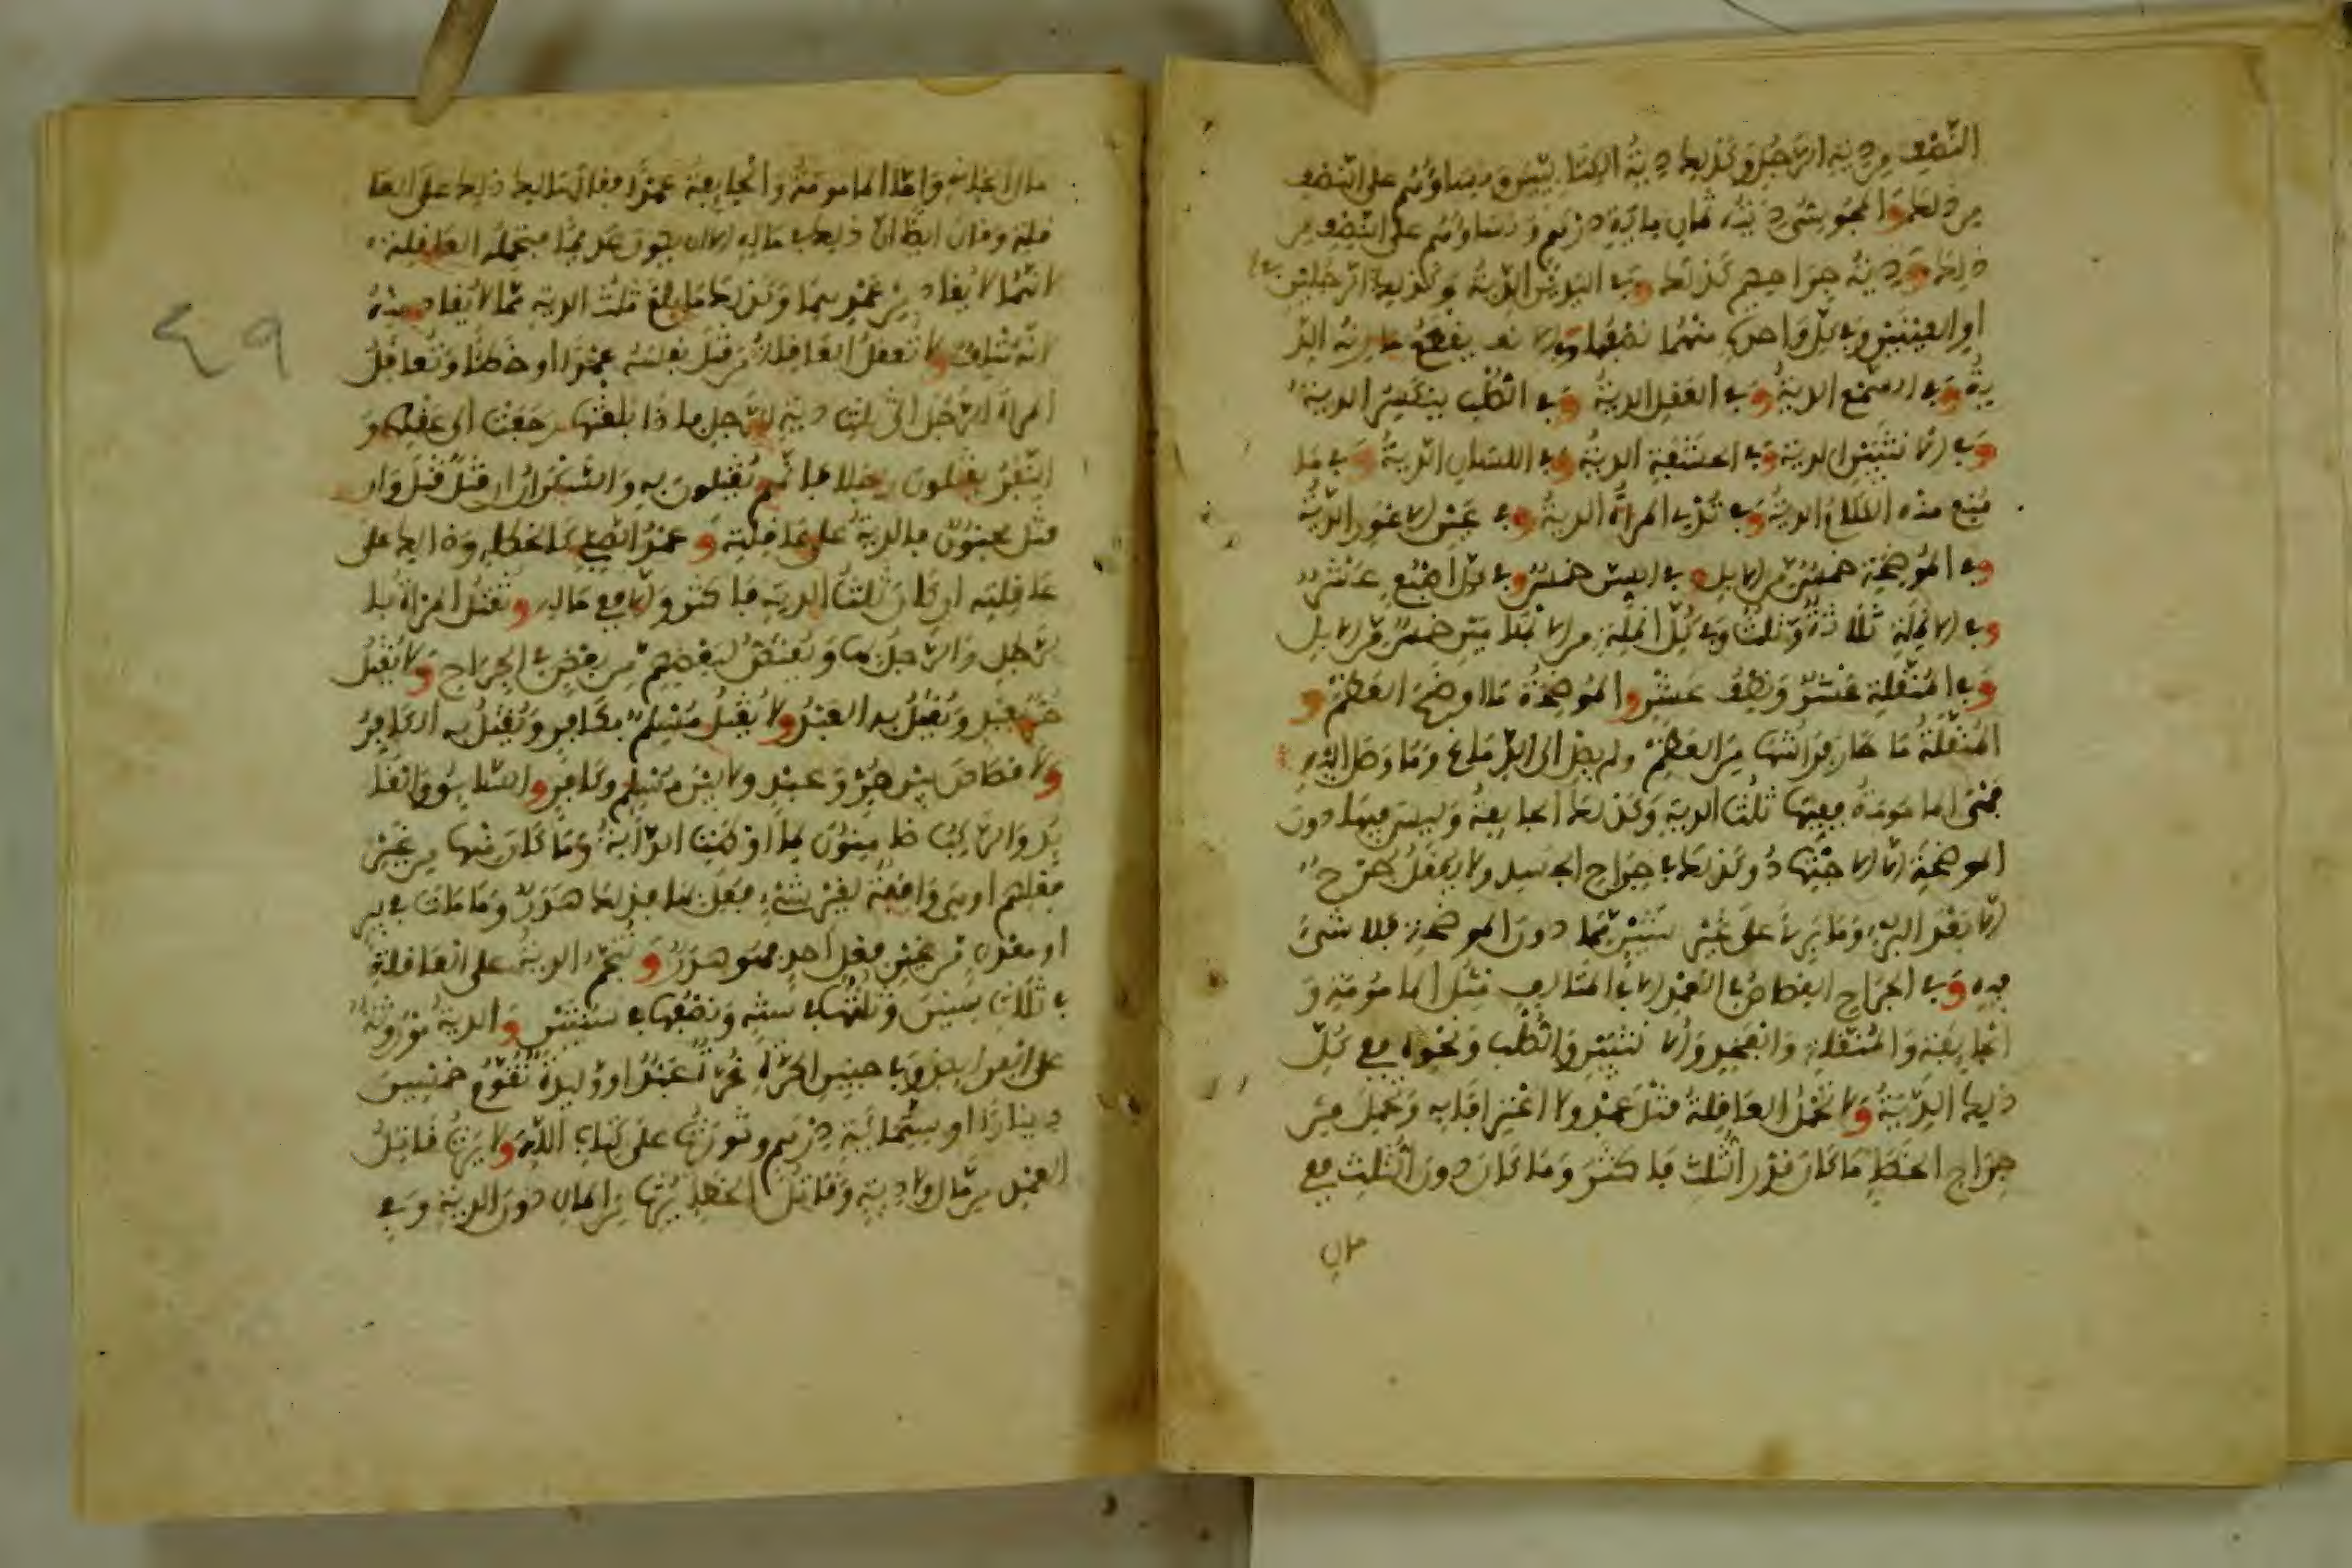 النصف من دية الرجل وكذلك دية الكتابيين ونساؤهم على النصف
من ذلك والمجوسي ديته ثمان مائة درهم ونساؤهم على النصف من
ذلك ودية جراحهم كذلك وفي اليدين الدية وكذلك الرجلين
او العينين وفي كل واحدة منهما نصفها وفي الانف يقطع مارنه الد
ية وفي السمع الدية وفي العقل الدية وفي الصلب ينكسر الدية
وفي الانثيين الدية وفي الحشفة الدية وفي اللسان الدية وفي ما
منع منه الكلام الدية وفي ثديي المراة الدية وفي عين الاعور الدية
وفي الموضحة خمس من الابل وفي السن خمس وفي كل اصبع عشر
وفي الانملة ثلاثة وثلث وفي كل انملة من الابهامين خمس من الابل
وفي المنقلة عشر ونصف عشر والموضحة ما اوضح العظم و
المنقلة ما طار فراشها من العظم ولم يصل الى الدماغ وما وصل اليه
فهي المامومة ففيها ثلث الدية وكذلك الجايفة وليس فيما دون
الموضحة الا الاجتهاد وكذلك في جراح الجسد ولا يعقل جرح
الا بعد البرء وما برئ على غير شين مما دون الموضحة فلا شيء
فيه وفي الجراح القصاص في العمد الا في المتالف مثل المامومة و
الجايفة والمنقلة والفخذ والانثيين والصلب ونحوه ففي كل
ذلك الدية ولا تحمل العاقلة قتل عمد ولا اعترافا به وتحمل من
جراح الخطإ ما كان قدر الثلث فاكثر وما كان دون الثلث ففي
مال
مال الجاني واما المامومة والجايفة عمدا فقال مالك ذلك على العا
قلة وقال ايضا ان ذلك في ماله الا ان يكون عديما فتحمله العاقلة
لانهما لا يقاد من عمدهما وكذلك ما بلغ ثلث الدية مما لا يقاد منه
لانه متلف ولا تعقل العاقلة من قتل نفسه عمدا او خطئا وتعاقل
المراة الرجل الى ثلث دية الرجل فاذا بلغتها رجعت الى عقلها و
النفر يقتلون رجلا فانهم يقتلون به والسكران ان قتل قتل وان
قتل مجنون فالدية على عاقلته وعمد الصبي كالخطإ وذلك على
عاقلته ان كان ثلث الدية فاكثر والا ففي ماله وتقتل المراة با
لرجل والرجل بها ويقتص لبعضهم من بعض في الجراح ولا يقتل
حر بعبد ويقتل به العبد ولا يقتل مسلم بكافر ويقتل به الكافر
ولا قصاص بين حر وعبد ولا بين مسلم وكافر والسايق والقا
يد والراكب ضامنون لما اوطئت الدابة وما كان منها من غير
فعلهم او هي واقفة لغير شيء فعل بها فذلك هدر وما مات في بير
او معدن من غير فعل احد فهو هدر وتنجم الدية على العاقلة
في ثلاث سنين وثلثها في سنة ونصفها في سنتين والدية موروثة
على الفرايض وفي جنين الحرة غرة عبد او وليدة تقوم خمسين
دينارا او ستماية درهم وتورث على كتاب الله ولا يرث قاتل
العمد من مال ولا دية وقاتل الخطإ يرث من المال دون الدية وفي
٤٩